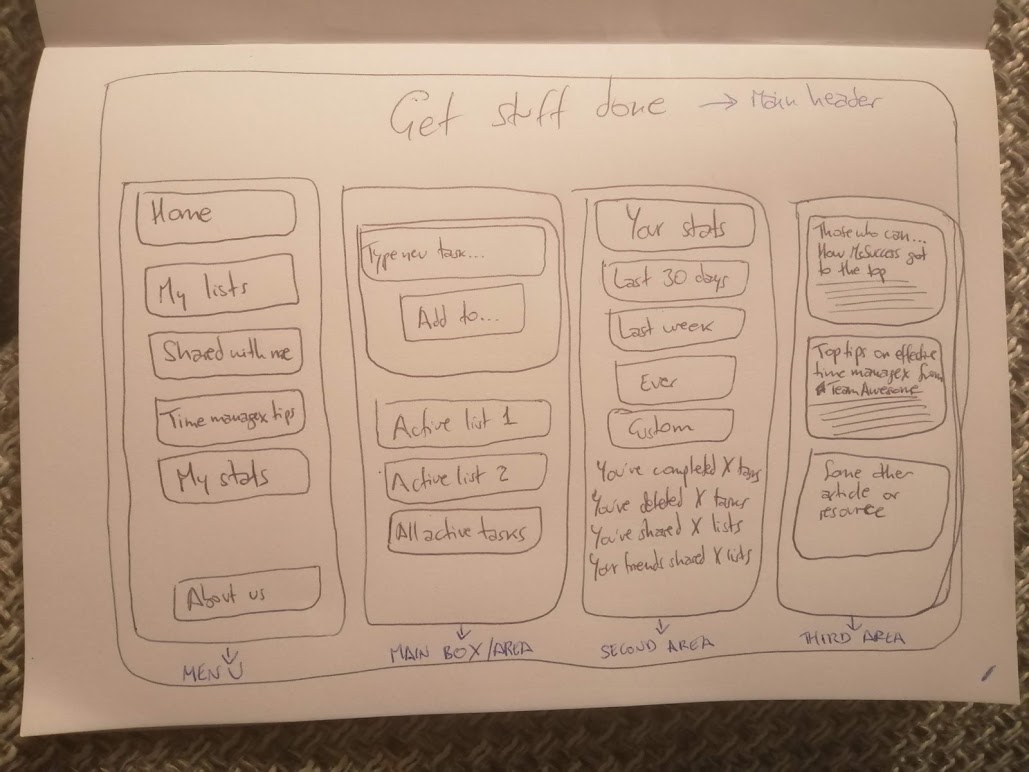 Get stuff done → Main header
Home
My lists
Shared with me
Time managex tips
My stats
About us
MENU
Type new task...
Add to...
Active list 1
Active list 2
All active tasks
MAIN BOX/AREA
Your stats
Last 30 days
Last week
Ever
Custom
You've completed X tasks
You've deleted X tasks
You've shared X lists
Your friends shared X lists
SECOND AREA
Those who can...
How McSuccess got
to the top
Top tips on effective
time managex from
TeamAwesome
Some other
article or
resource
THIRD AREA